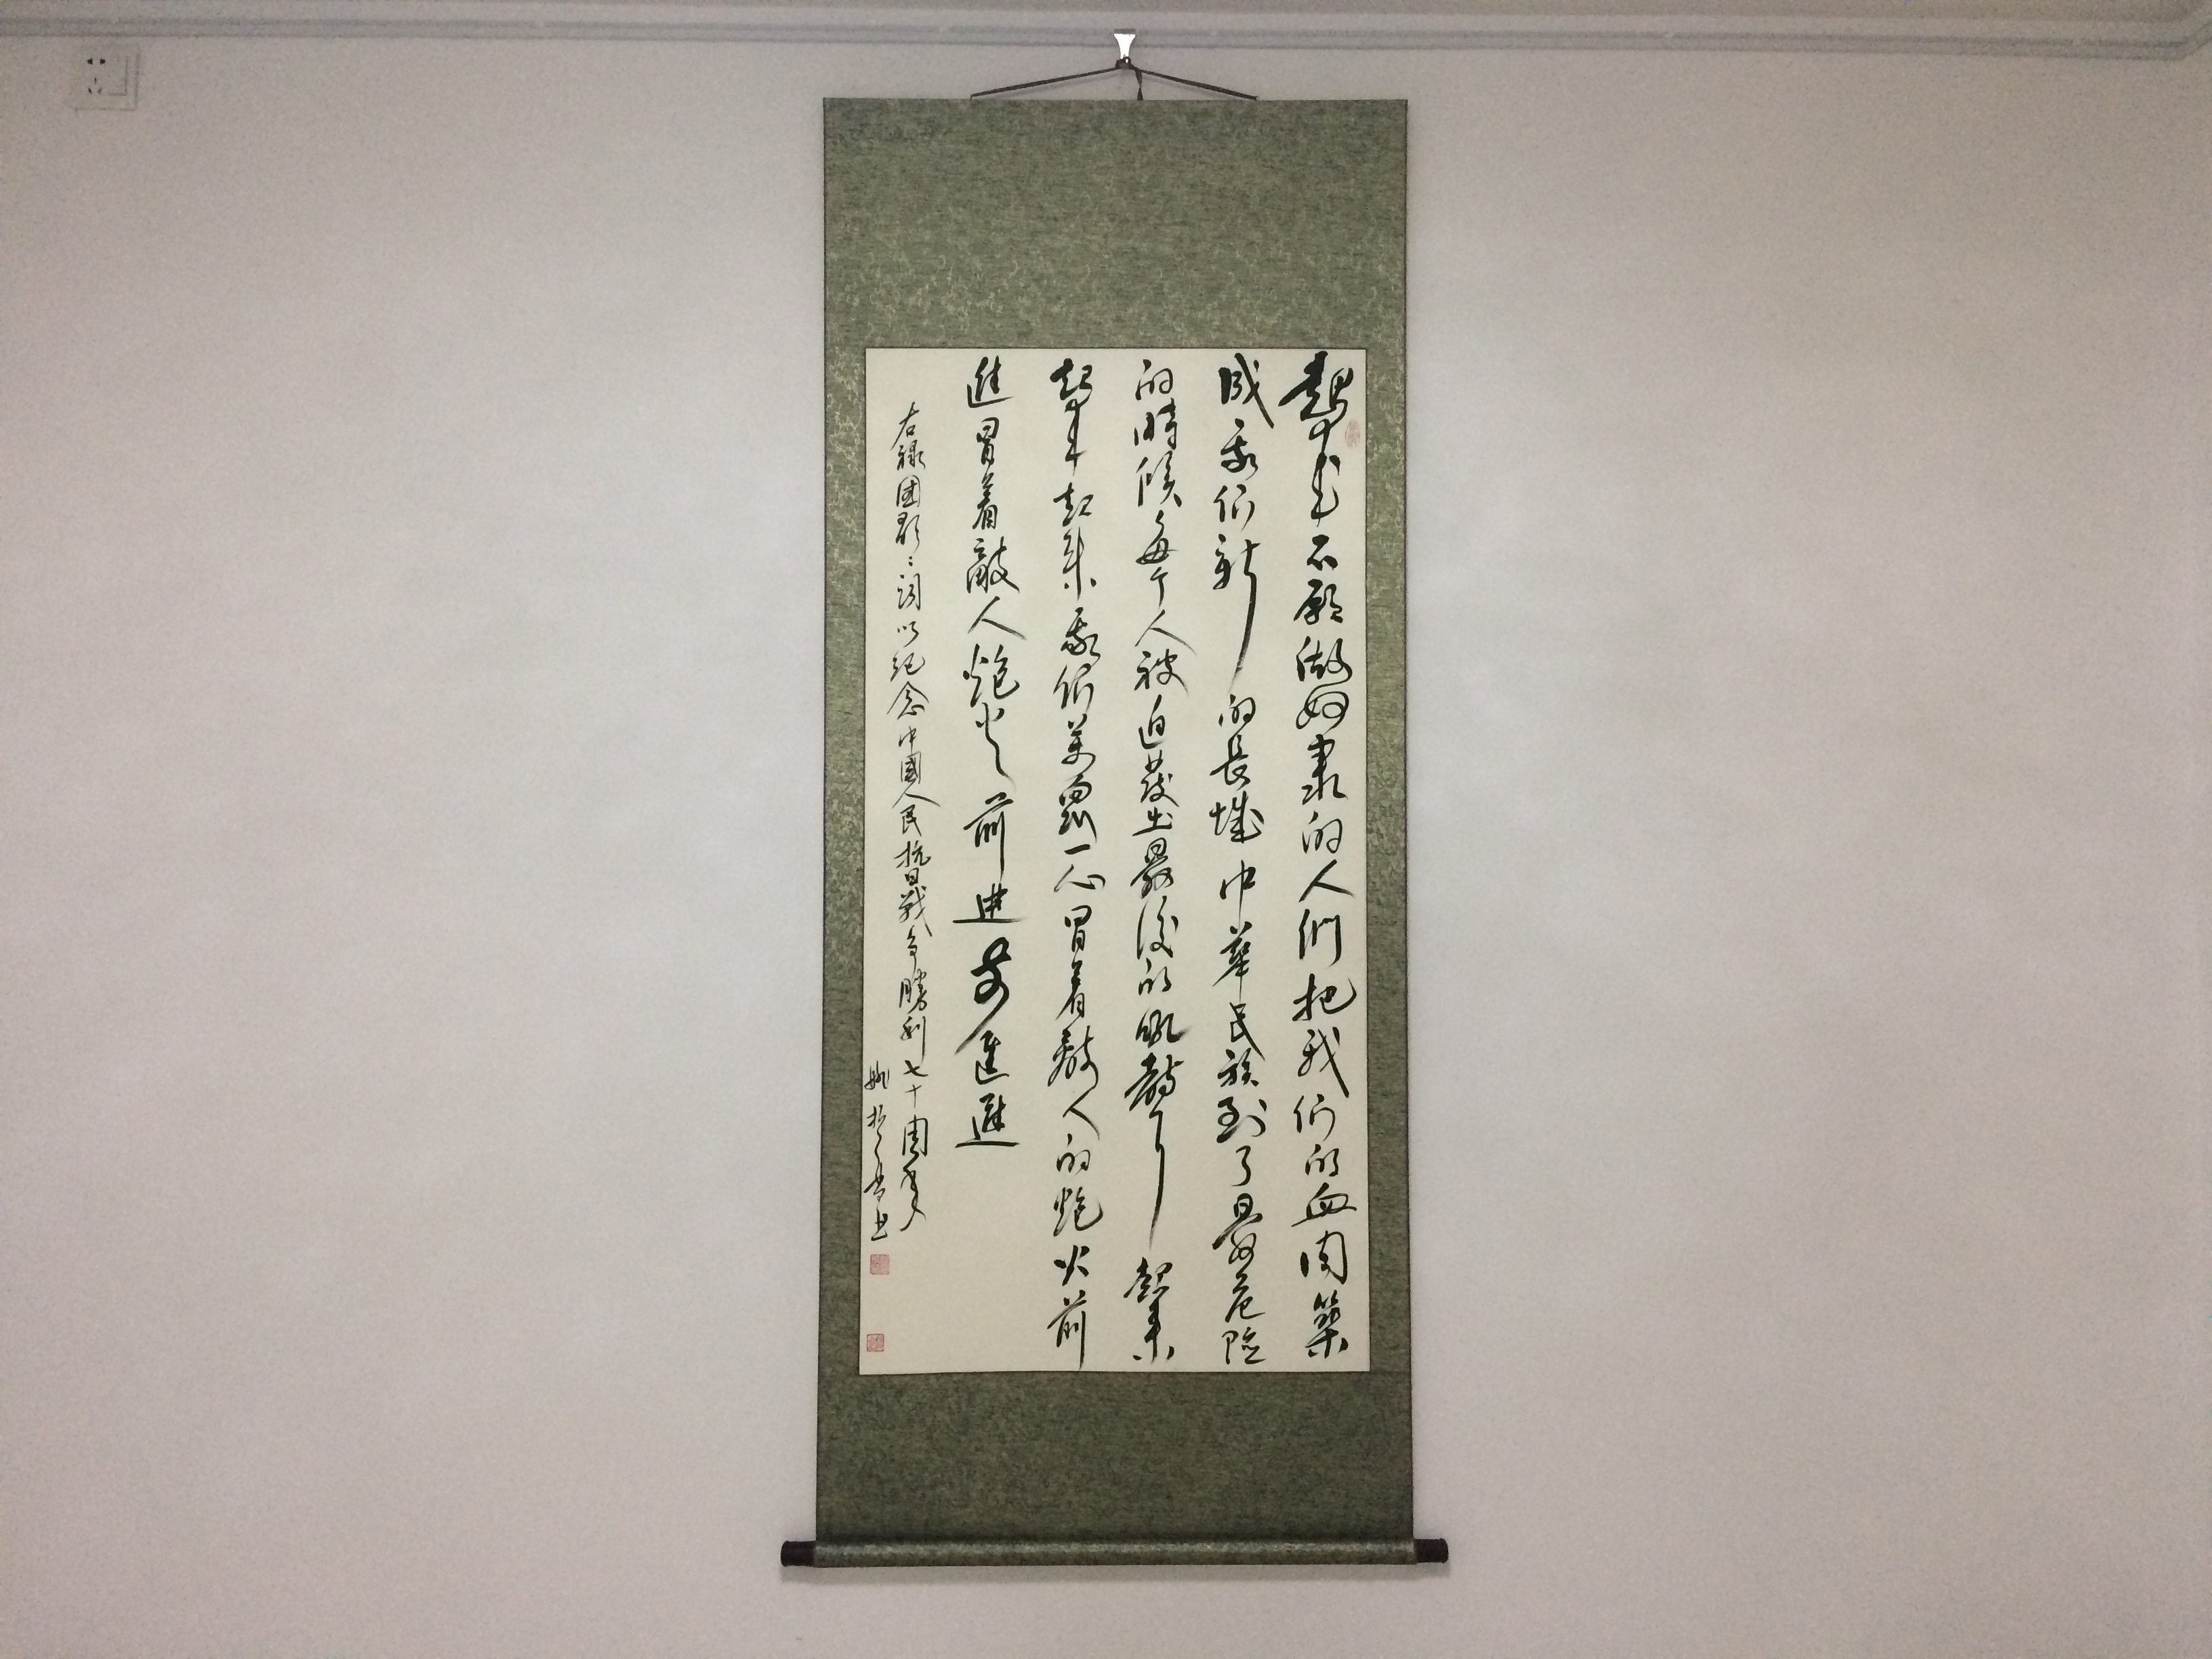 起来不愿做奴隶的人们把我们的血肉築
成我们新的長城中華民族到了最危险
的時候每个人被迫發出最後的吼聲起来
起来起来我们萬眾一心冒着敵人的炮火前
進冒着敵人炮火前進前進進
右录国歌之词以纪念中國人民抗日戰争勝利七十周年
书